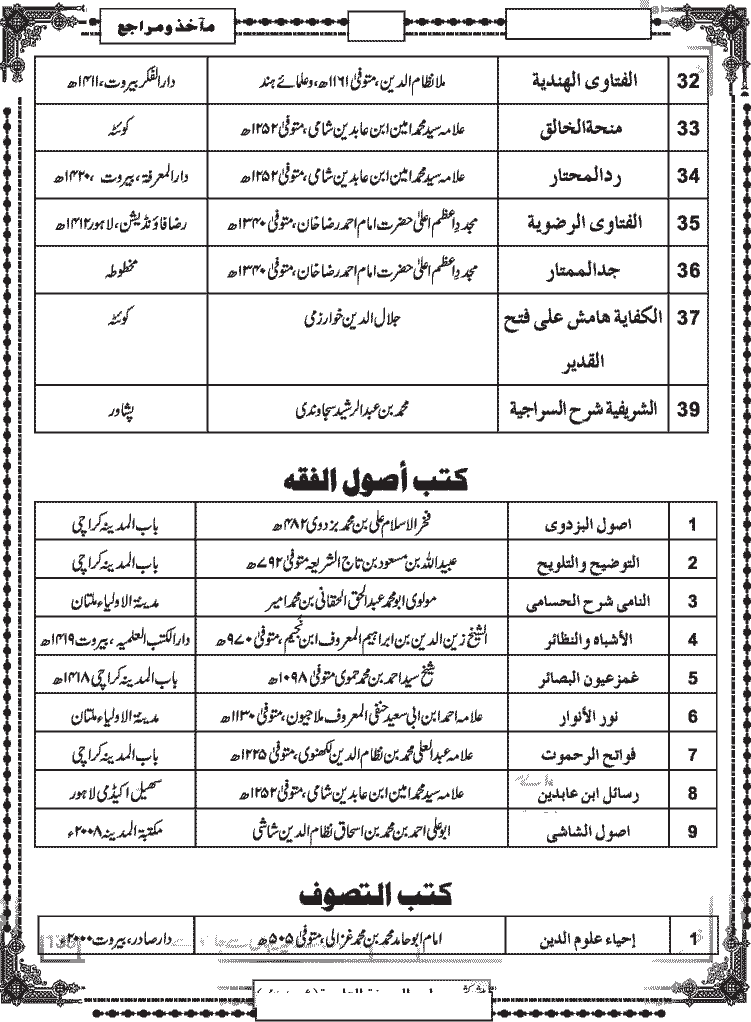 مآخذ ومراجع
32 الفتاوى الهندية ملا نظام الدین، متوفیٰ ۱۱۶۱ھ، وعلمائے ہند دار الفکر بیروت، ۱۴۱۱ھ
33 منحة الخالق علامہ سید محمد امین ابن عابدین شامی، متوفیٰ ۱۲۵۲ھ کوئٹہ
34 ردالمحتار علامہ سید محمد امین ابن عابدین شامی، متوفیٰ ۱۲۵۲ھ دار المعرفۃ، بیروت ،۱۴۲۰ھ
35 الفتاوى الرضوية مجدد اعظم اعلیٰ حضرت امام احمد رضا خان، متوفیٰ ۱۳۴۰ھ رضا فاؤنڈیشن، لاہور ۱۴۱۲ھ
36 جدالممتار مجدد اعظم اعلیٰ حضرت امام احمد رضا خان، متوفیٰ ۱۳۴۰ھ مخطوطہ
37 الكفاية هامش على فتح جلال الدین خوارزمی کوئٹہ
القدير
39 الشريفية شرح السراجية محمد بن عبد الرشید سجاوندی پشاور
كتب أصول الفقه
1 اصول البزدوى فخر الاسلام علی بن محمد بزدوی ۴۸۲ھ باب المدینہ کراچی
2 التوضيح والتلويح عبید اللہ بن مسعود بن تاج الشریعہ متوفیٰ ۷۹۲ھ باب المدینہ کراچی
3 النامى شرح الحسامى مولوی ابو محمد عبد الحق الحقانی بن محمد امیر مدینۃ الاولیاء ملتان
4 الأشباه والنظائر الشیخ زین الدین بن ابراہیم المعروف ابن نجیم، متوفیٰ ۹۷۰ھ دار الکتب العلمیہ، بیروت ۱۴۱۹ھ
5 غمزعيون البصائر شیخ سید احمد بن محمد حموی متوفیٰ ۱۰۹۸ھ باب المدینہ کراچی ۱۴۱۸ھ
6 نور الأنوار علامہ احمد ابن ابی سعید حنفی المعروف ملا جیون، متوفیٰ ۱۱۳۰ھ مدینۃ الاولیاء ملتان
7 فواتح الرحموت علامہ عبد العلی محمد بن نظام الدین لکھنوی، متوفیٰ ۱۲۲۵ھ باب المدینہ کراچی
8 رسائل ابن عابدين علامہ سید محمد امین ابن عابدین شامی، متوفیٰ ۱۲۵۲ھ سہیل اکیڈمی لاہور
9 اصول الشاشى ابو علی احمد بن محمد بن اسحاق نظام الدین شاشی مکتبۃ المدینہ ۲۰۰۸ء
كتب التصوف
1 إحياء علوم الدين امام ابو حامد محمد بن محمد غزالی، متوفیٰ ۵۰۵ھ دار صادر، بیروت ۲۰۰۰ء